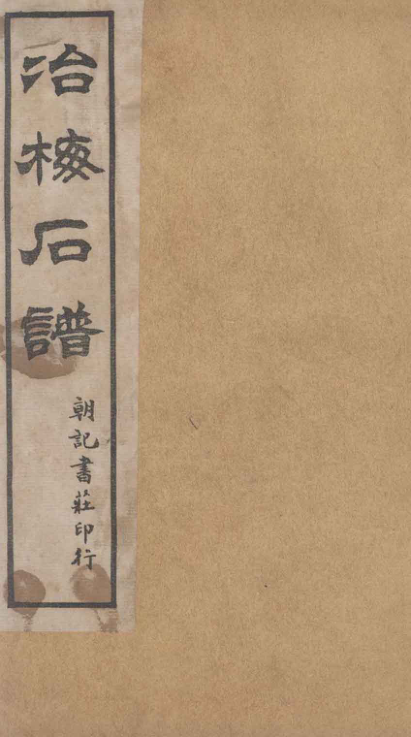 冶梅石譜
朝記書莊印行